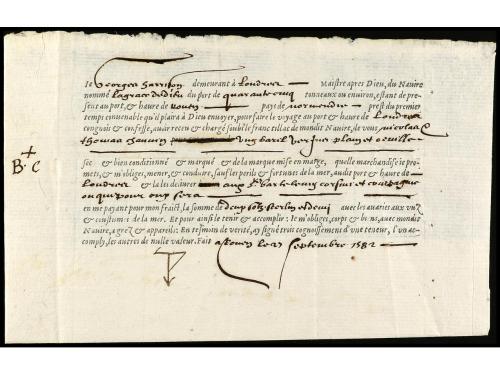 Je Georges Harrison demeurant à Londres Maistre apres Dieu, du Navire
nommé La grace de dieu du port de quarante cinq tonneaux ou environ, estant de pre-
sent au port, & havre de Rouen pays de normendie prest du premier
temps convenable qu'il plaira à Dieu envoyer, pour faire le voyage au port & havre de Londres
congnois & confesse, avoir receu & chargé soubs le franc tillac de mondit Navire, de vous Nicolas &
thomas ung baril
sec & bien conditionné & marqué & de la marque mise en marge, quelle marchandise je pro-
mets, & m'obliges, mener, & conduire, sauf les perils & fortunes de la mer, audit port & havre de
Londres & la les delivrer aux et compagnie
ou qui pour eux sera
en me payant pour mon fraict, la somme de deux solz sterlin et demi avec les avaries aux vuz
& coustumes de la mer. Et pour ainsi le tenir & accomplir: Je m'obliges, corps & biens, avec mondit
Navire, agrez & appareils: En tesmoin de verité, ay signé trois cognoissement d'une teneur, l'un ac-
comply, les autres de nulle valeur. Fait a Rouen le Septembre 1582
B·C